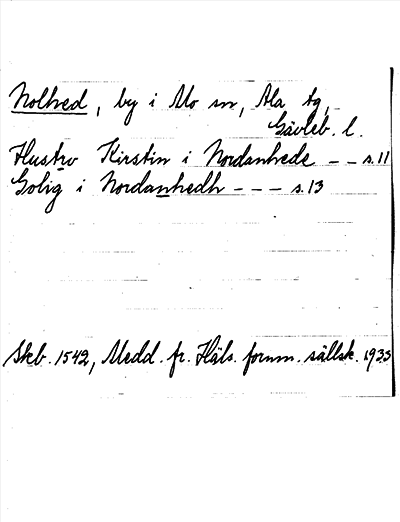 Nolhed, by i Mo sn, Ala tg,
Gävleb. l.
Hustrv Kirstin i Nordanhede - - s. 11
Golig i Nordanhedh - - - s. 13
Skb. 1542, Medd. fr. Häls. fornm. sällsk. 1935